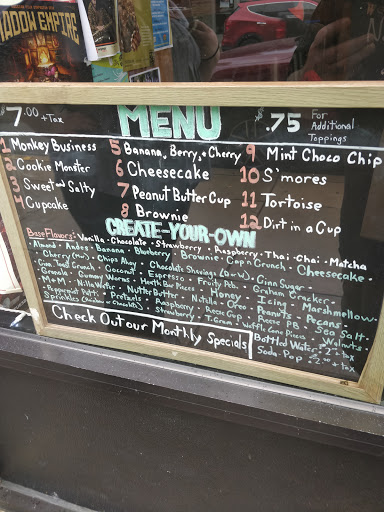 HADOW EMPIRE
$7.00 + Tax
MENU
$.75 For Additional Toppings
1 Monkey Business
2 Cookie Monster
3 Sweet and Salty
4 Cupcake
5 Banana, Berry, + Cherry
6 Cheesecake
7 Peanut Butter Cup
8 Brownie
9 Mint Choco Chip
10 S'mores
11 Tortoise
12 Dirt in a Cup
CREATE-YOUR-OWN
Base Flavors: Vanilla · Chocolate · Strawberry · Raspberry · Thai · Chai · Matcha
Almond · Andes · Banana · Blueberry · Brownie · Cap'n Crunch · Cheesecake ·
Cherry · Chips Ahoy · Chocolate Shavings · Cinn Sugar ·
Cinn Toast Crunch · Coconut · Espresso · Fruity Peb. · Graham Cracker ·
Granola · Gummy Worms · Heath Bar Pieces · Honey · Icing · Marshmallow ·
M+M · Nilla Wafer · Nutter Butter · Nutella · Oreo · Peanuts · Pecans ·
Peppermint Patty · Pretzels · Raspberry · Reese Cup · Reese PB · Sea Salt ·
Sprinkles (Rainbow or Chocolate) · Strawberry · T.Gram · Waffle Cone Pieces · Walnuts
Check Out our Monthly Specials
Bottled Water + tax
Soda-Pop $2.00 + tax